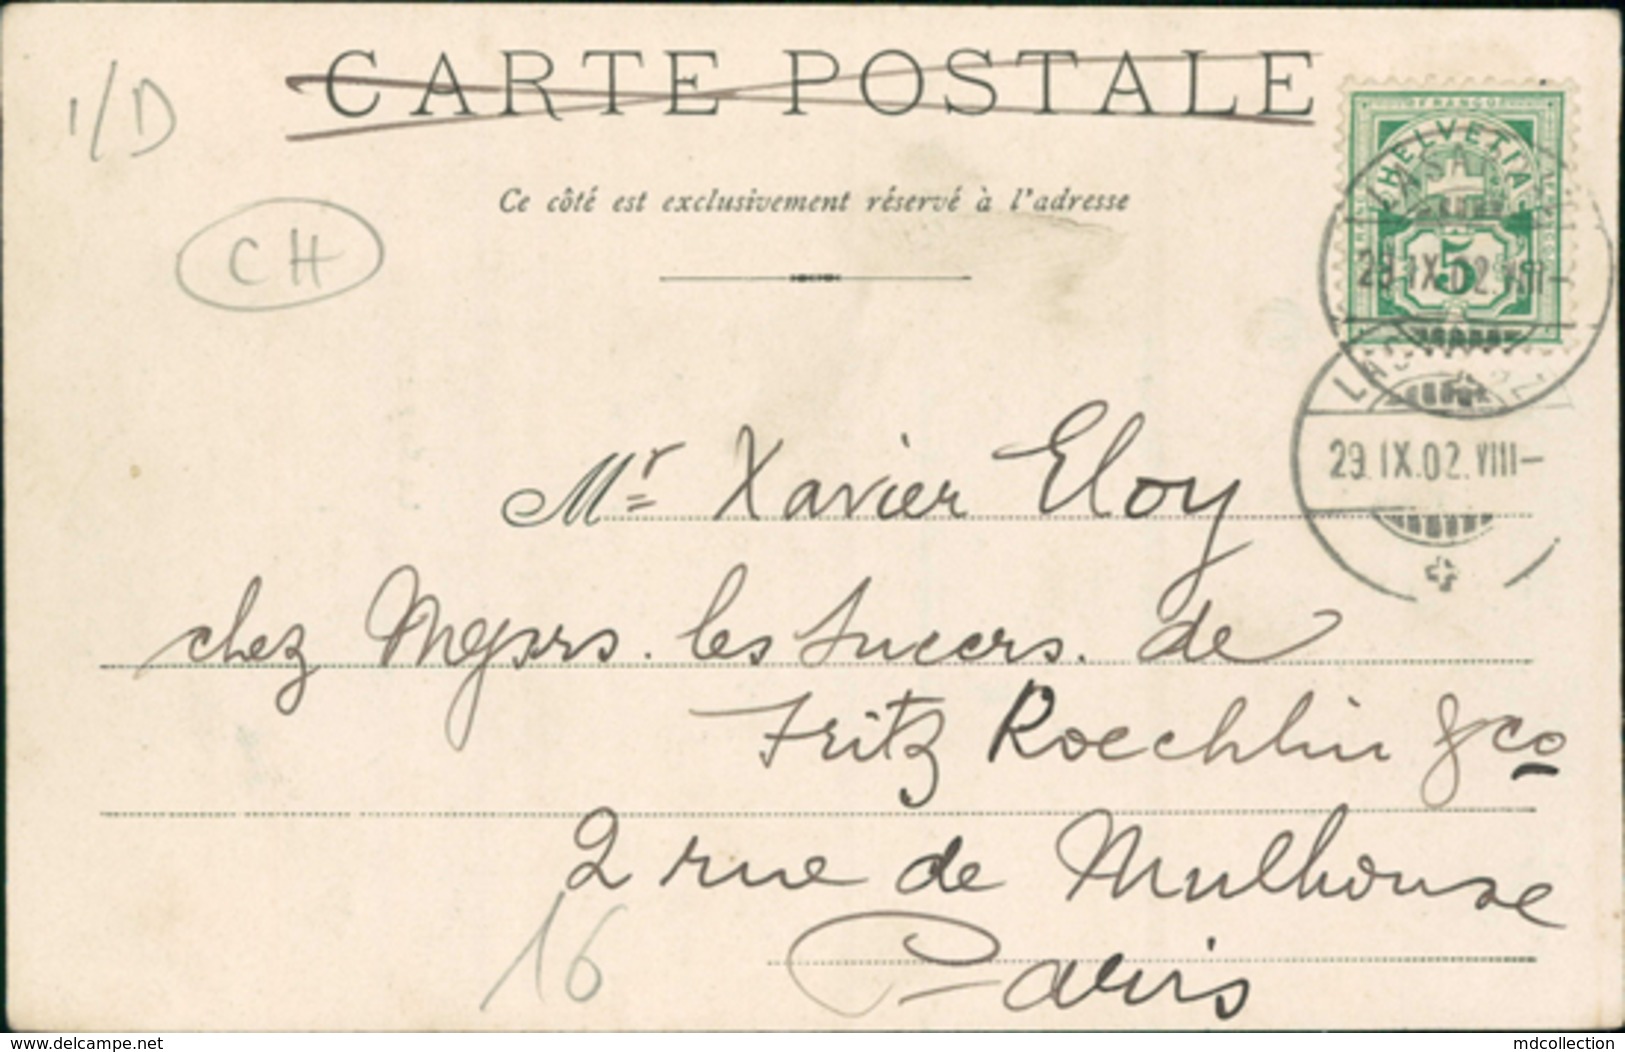 CARTE POSTALE
1/D
FRANCO
HELVETIA
5
Ce côté est exclusivement réservé à l'adresse
CH
29.IX.02.VIII-
29.IX.02.VIII-
Mr Xavier Eloy
chez les Succrs. de
Fritz Roechlin & Co
2 rue de Mulhouse
16
Paris
www.delcampe.com
mdcollection